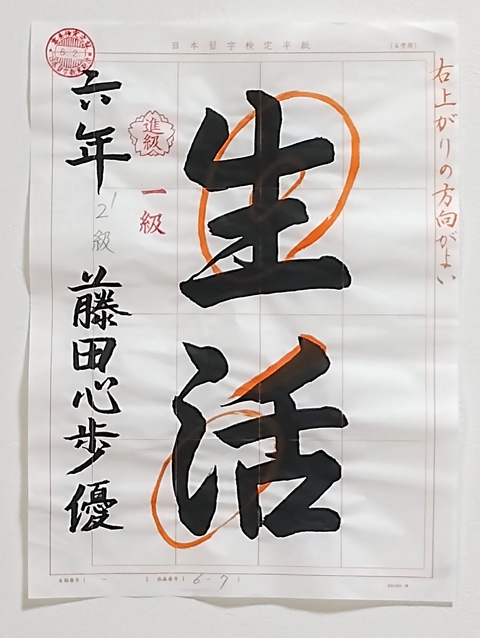 日本習字検定半紙
右上がりの方向がよい
生活
進級
一級
六年
2級
藤田心歩優
6-7